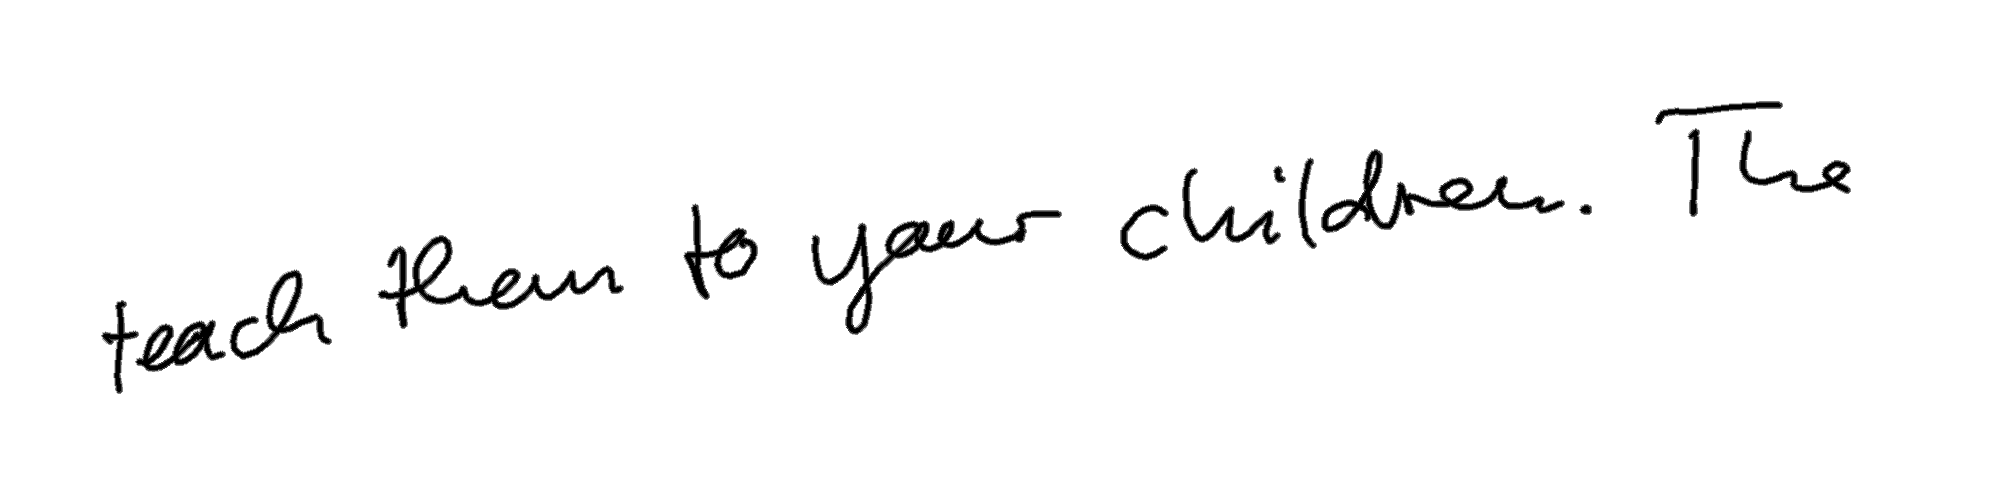 teach them to your children. The